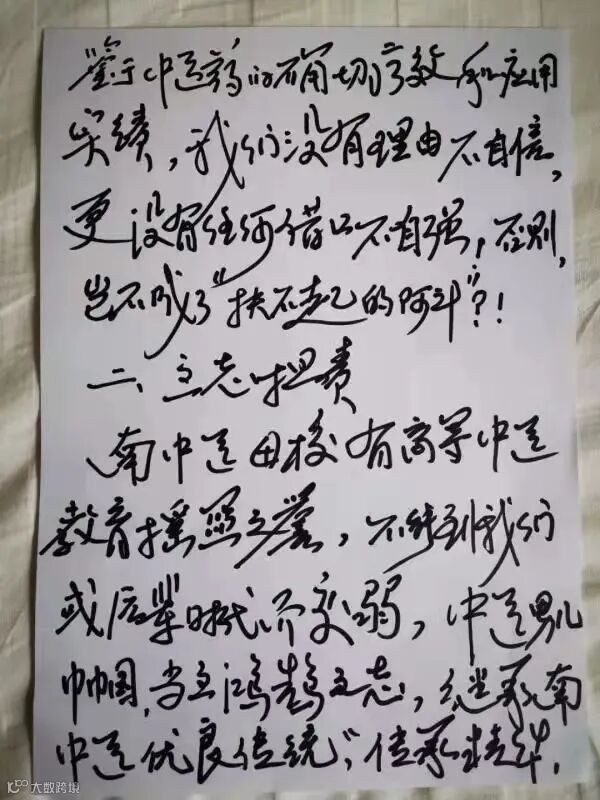 鉴于中医药的确切疗效和应用
实绩，我们没有理由不自信，
更没有任何借口不自强，否则，
岂不成了“扶不起的阿斗”？！
二、立志担责
南中医母校有高等中医
教育摇篮之誉，不能到我们
或后辈时代而变弱，中医男儿
巾帼，当立鸿鹄之志，继承南
中医优良传统，传承精华，
大数跨境